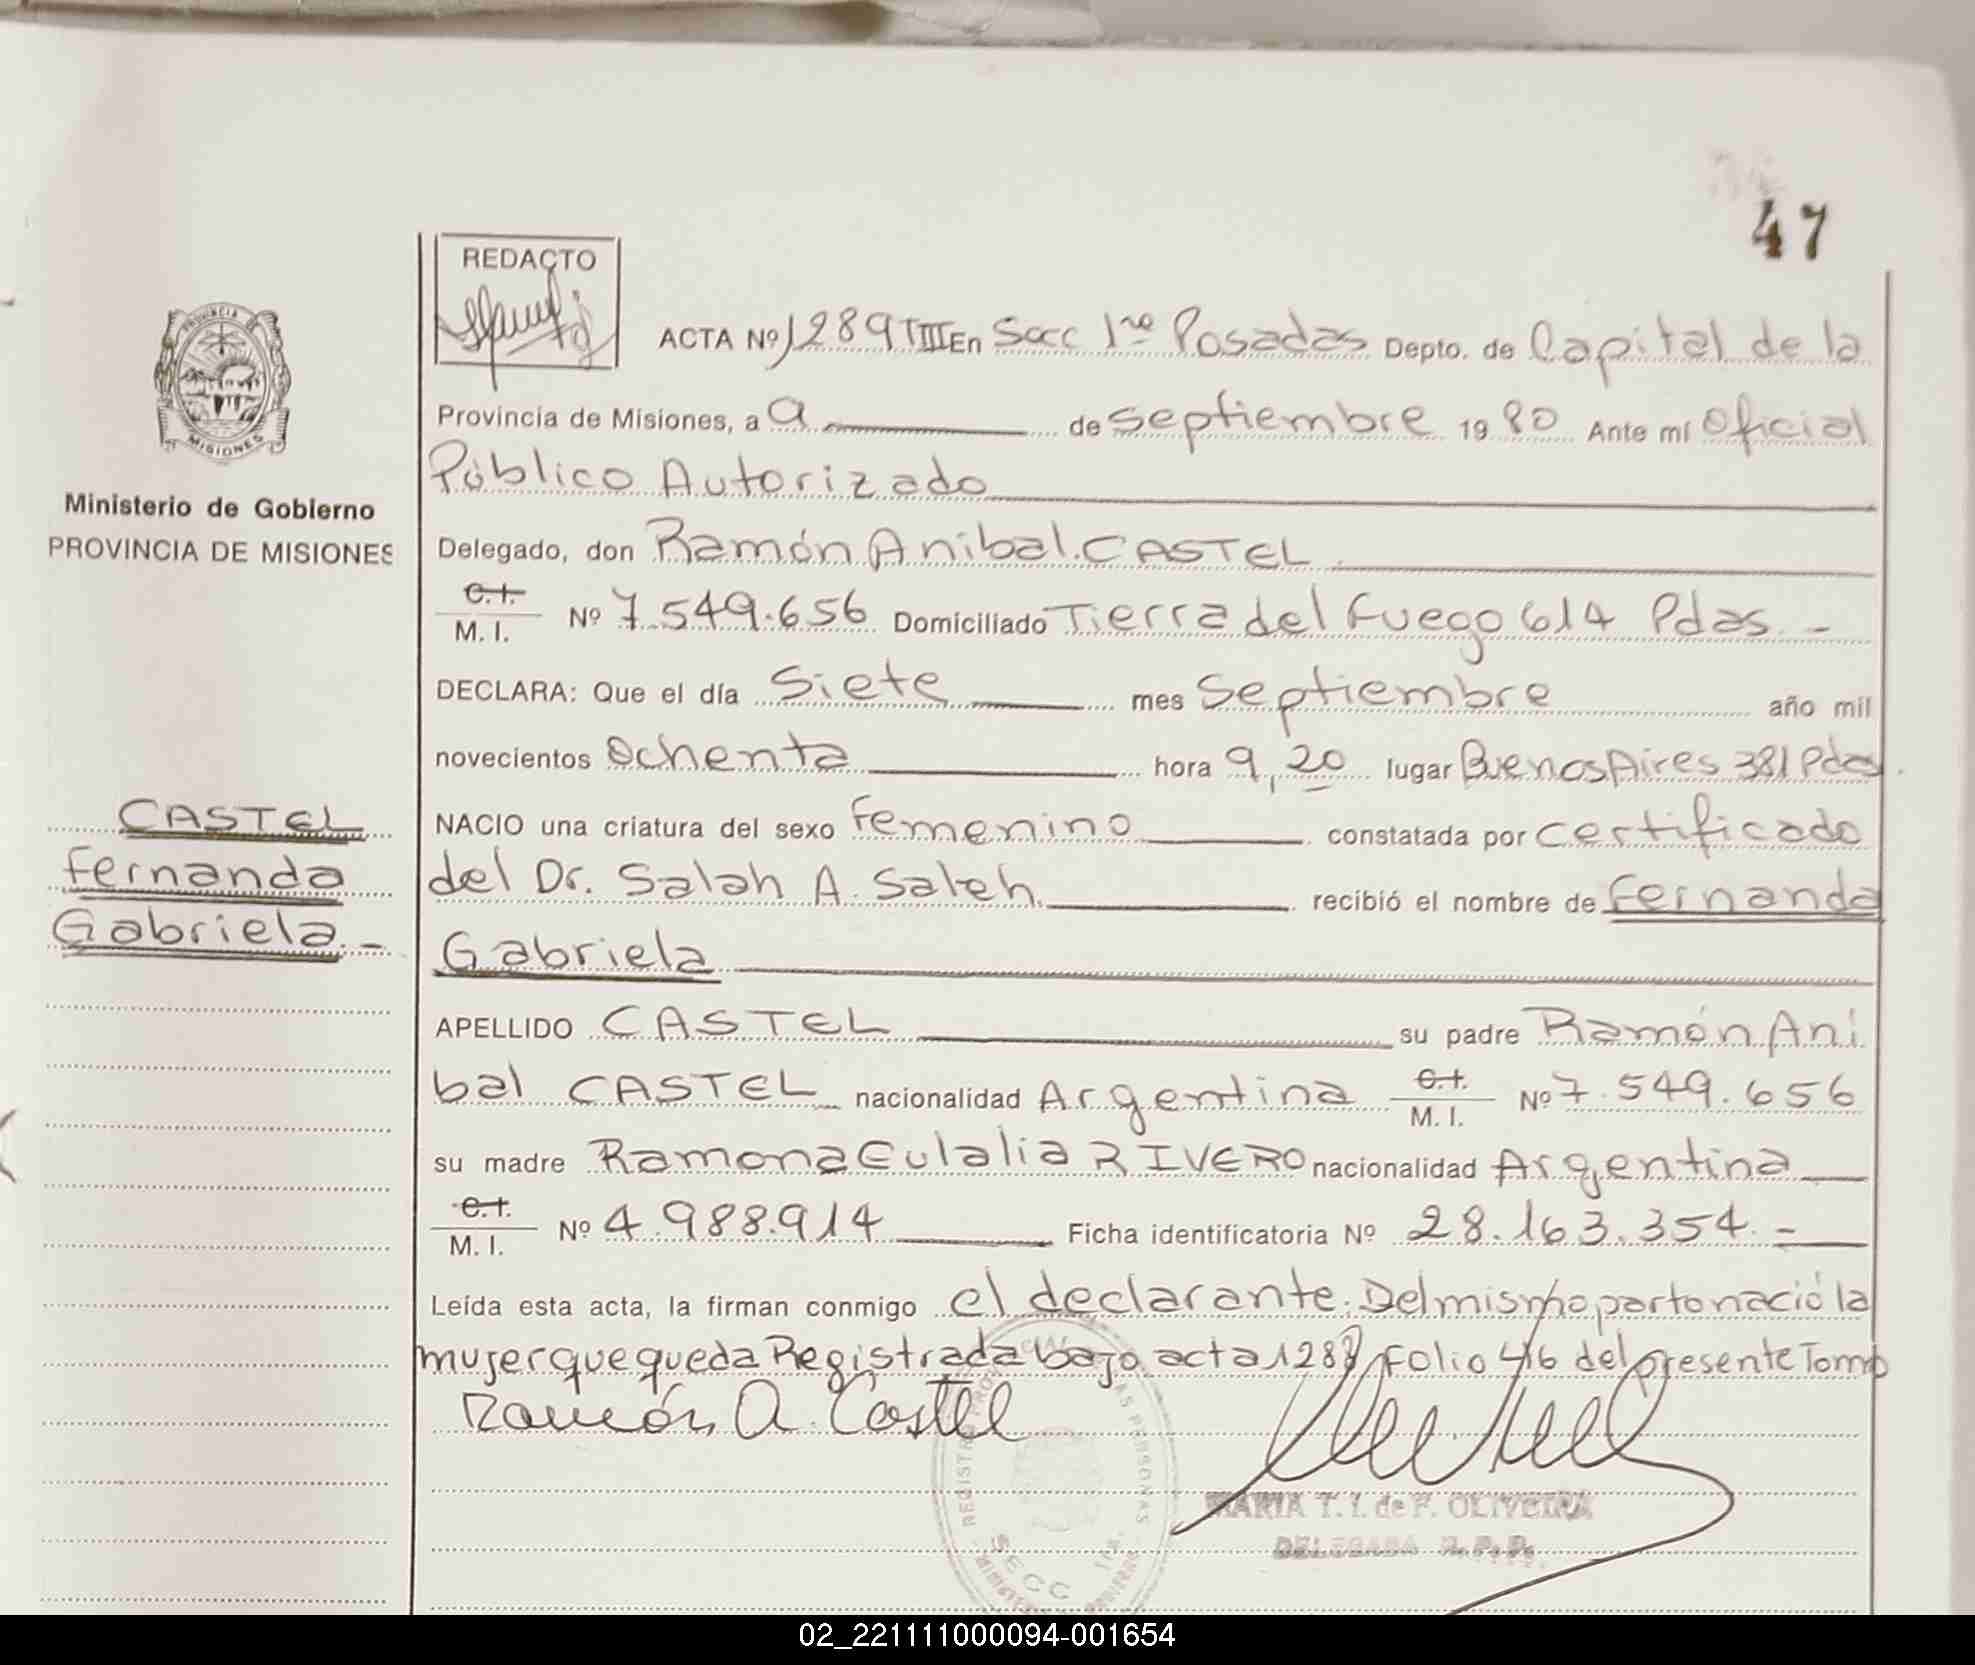 47
REDACTO
ACTA Nº 1289 TIII En Secc 1ra Posadas Depto. de Capital de la
Provincia de Misiones, a 9 de Septiembre 1980 Ante mí Oficial
Público Autorizado
Ministerio de Gobierno
PROVINCIA DE MISIONES
Delegado, don Ramón Anibal CASTEL
C.I.
M. I. Nº 7.549.656 Domiciliado Tierra del Fuego 614 Pdas. -
DECLARA: Que el día Siete mes Septiembre año mil
novecientos Ochenta hora 9,20 lugar Buenos Aires 381 Pdas.
CASTEL
Fernanda
Gabriela. -
NACIO una criatura del sexo Femenino constatada por Certificado
del Dr. Salah A. Saleh recibió el nombre de Fernanda
Gabriela
APELLIDO CASTEL su padre Ramón Aní
bal CASTEL nacionalidad Argentina C.I. M. I. Nº 7.549.656
su madre Ramona Eulalia RIVERO nacionalidad Argentina
C.I.
M. I. Nº 4.988.914 Ficha identificatoria Nº 28.163.354. -
Leída esta acta, la firman conmigo el declarante. Del mismo parto nació la
mujer que queda Registrada bajo acta 1288 Folio 46 del presente Tomo
Ramón A. Castel
MARIA T. I. de F. OLIVEIRA
DELEGADA R. P. P.
SECC 1ra.
02_221111000094-001654